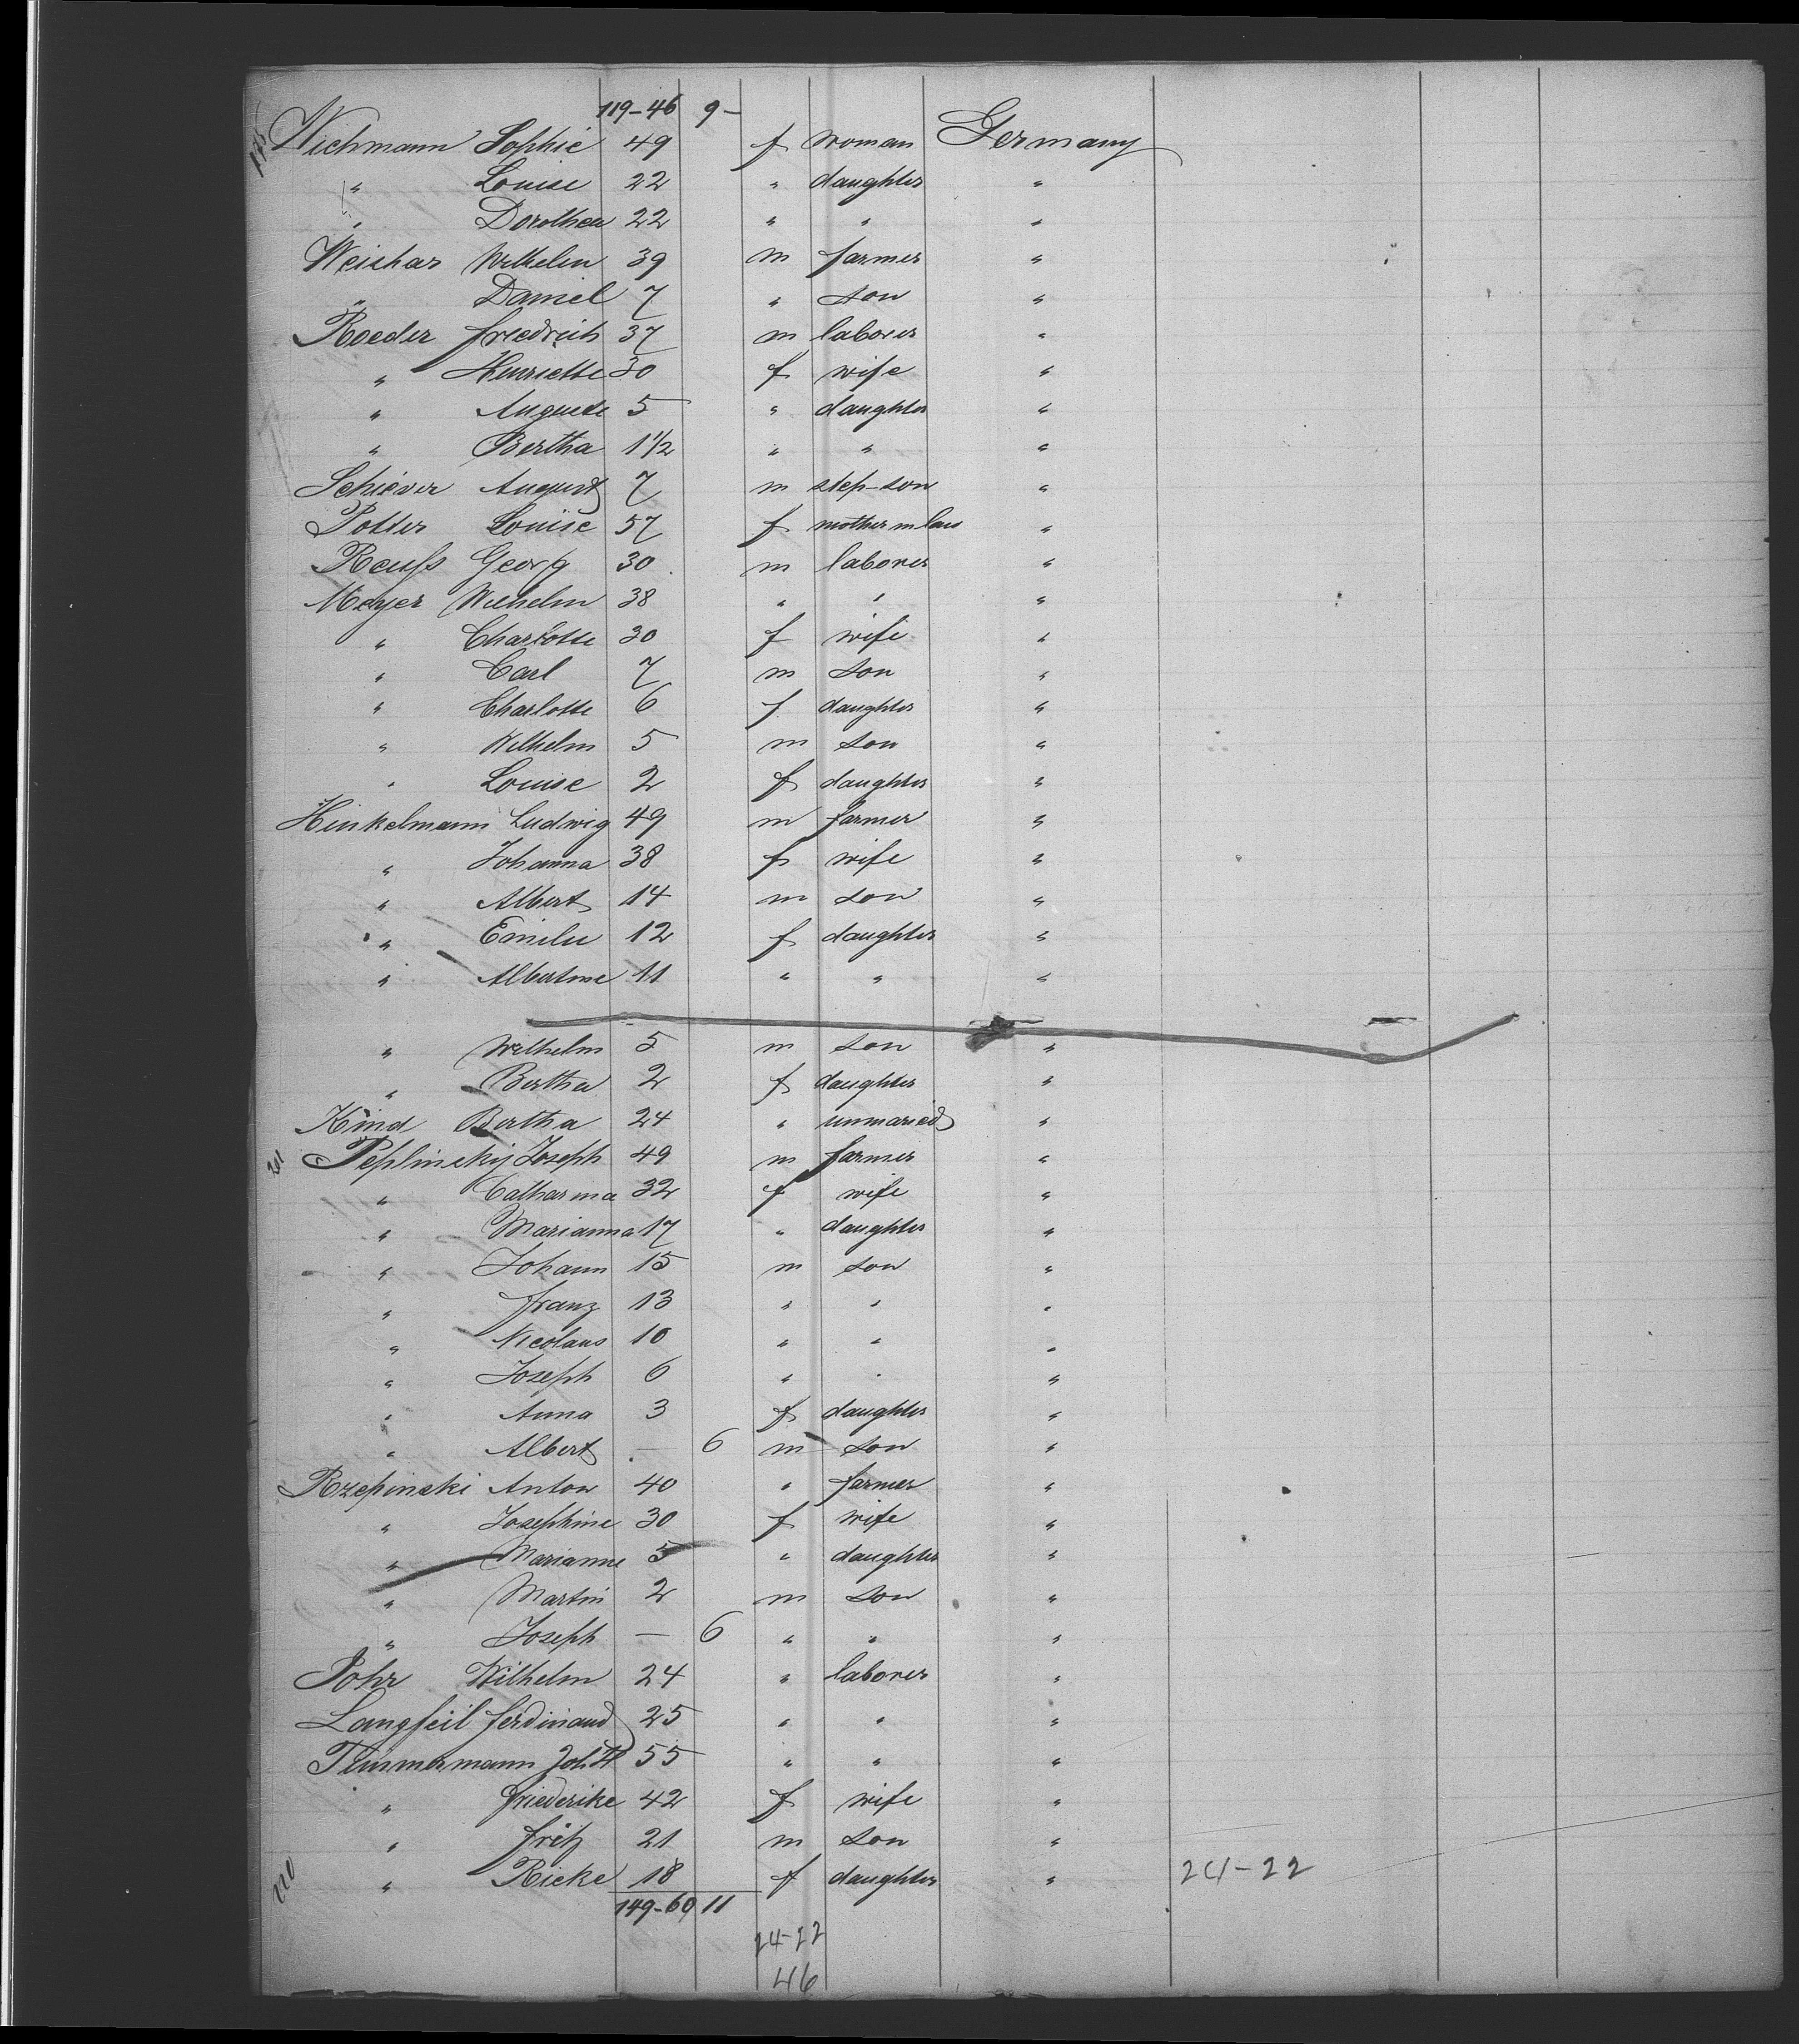 119-46 9-
175 Wichmann Sophie 49 f woman Germany
" Louise 22 " daughter "
" Dorothea 22 " " "
Weichar Wilhelm 39 m farmer "
" Daniel 7 " son "
Roeder Friedrich 37 m laborer "
" Henriette 30 f wife "
" Auguste 5 " daughter "
" Bertha 1 1/2 " " "
Schiever August 7 m step-son "
Potter Louise 57 f mother in law "
Reuß Georg 30 m laborer "
Meyer Wilhelm 38 " " "
" Charlotte 30 f wife "
" Carl 7 m son "
" Charlotte 6 f daughter "
" Wilhelm 5 m son "
" Louise 2 f daughter "
Hinkelmann Ludwig 49 m farmer "
" Johanna 38 f wife "
" Albert 14 m son "
" Emilie 12 f daughter "
" Albertine 11 " " "
" Wilhelm 5 m son "
" Bertha 2 f daughter "
Kind Bertha 24 " unmaried "
201 Peplinskij Joseph 49 m farmer "
" Catharina 32 f wife "
" Marianna 17 " daughter "
" Johann 15 m son "
" Franz 13 " " "
" Nicolaus 10 " " "
" Joseph 6 " " "
" Anna 3 f daughter "
" Albert — 6 m son "
Rzepinski Anton 40 " farmer "
" Josephine 30 f wife "
" Marianne 5 " daughter "
" Martin 2 m son "
" Joseph — 6 " " "
Pohr Wilhelm 24 " laborer "
Langfeil Ferdinand 25 " " "
Timmermann Joh. H 55 " " "
" Friederike 42 f wife "
" Fritz 21 m son "
220 " Ricke 18 f daughter " 24-22
149-60 11
24-22
46